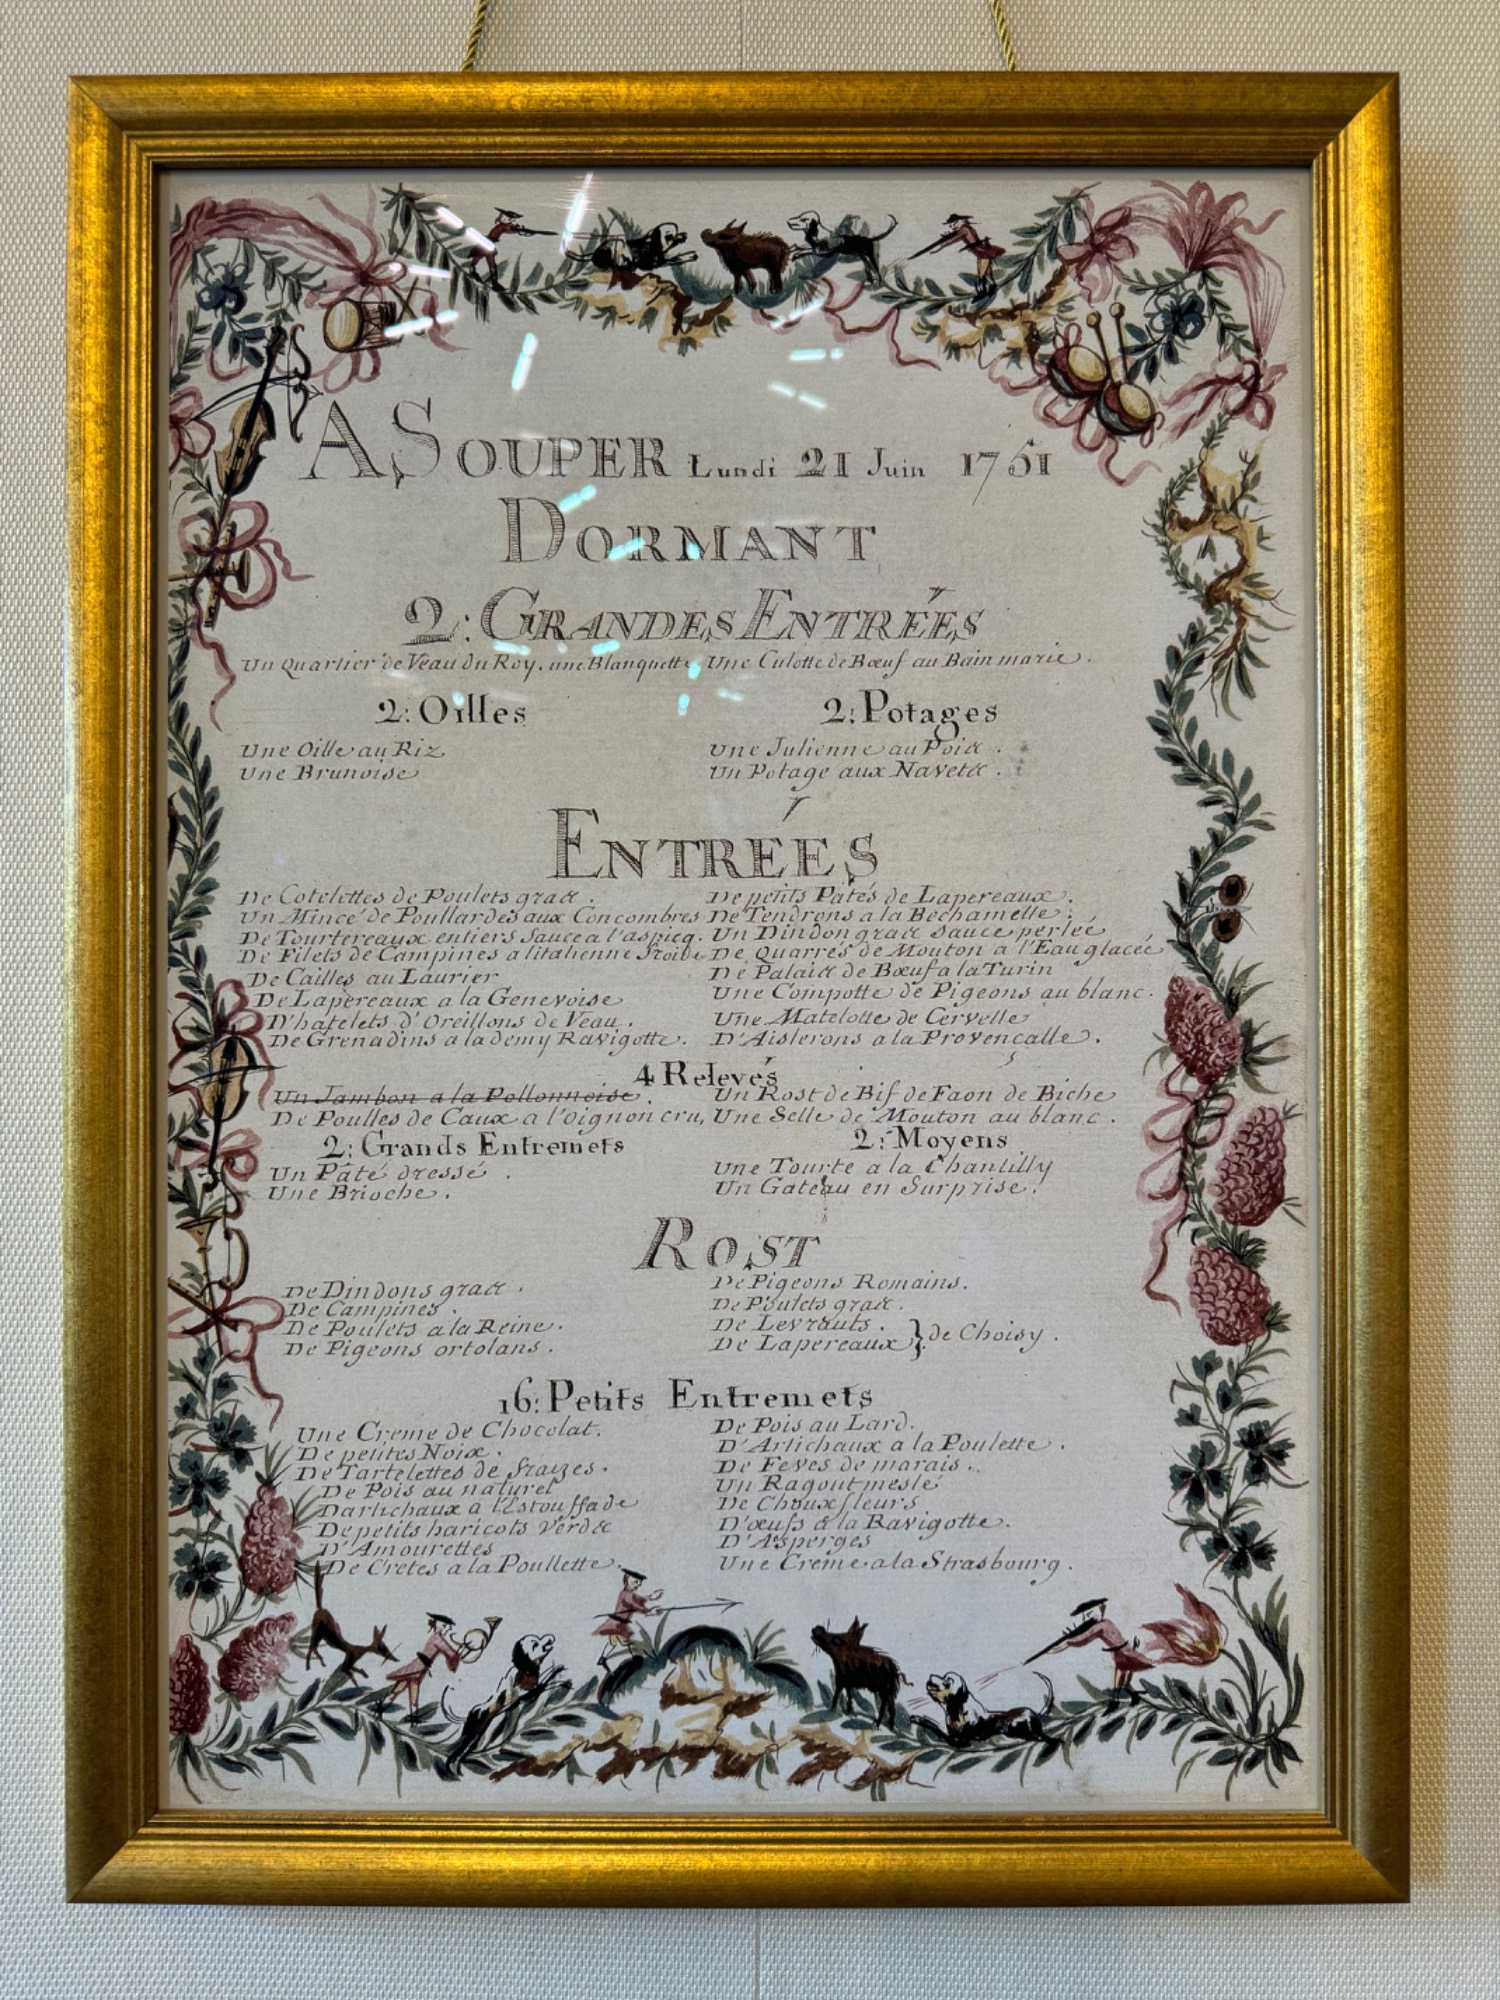 A SOUPER Lundi 21 Juin 1751
DORMANT
2: GRANDES ENTRÉES
Un Quartier de Veau du Roy, une Blanquette
Une Culotte de Bœuf au Bain marie.
2: Oilles
Une Oille au Riz
Une Brunoise
2: Potages
Une Julienne au Poix.
Un Potage aux Navets.
ENTRÉES
De Cotelettes de Poulets gras.
Un Mincé de Poullardes aux Concombres
De Tourtereaux entiers Sauce a l'aspicq.
De Filets de Campines a litalienne froide
De Cailles au Laurier
De Lapereaux a la Genevoise
D'hatelets d'Oreillons de Veau.
De Grenadins a la demy Ravigotte.
De petits Patés de Lapereaux.
De Tendrons a la Bechamelle.
Un Dindon gras Sauce perlée
De Quarrés de Mouton a l'Eau glacée
De Palais de Bœuf a la Turin
Une Compotte de Pigeons au blanc.
Une Matelotte de Cervelle
D'Aislerons a la Provençalle.
4 Relevés
Un Jambon a la Pollonnoise.
De Poulles de Caux a l'Oignon cru,
Un Rost de Bif de Faon de Biche
Une Selle de Mouton au blanc.
2: Grands Entremets
Un Pâté dressé.
Une Brioche.
2: Moyens
Une Tourte a la Chantilly
Un Gateau en Surprise.
ROST
De Dindons gras.
De Campines.
De Poulets a la Reine.
De Pigeons ortolans.
De Pigeons Romains.
De Poulets gras.
De Levrauts.
De Lapereaux } de Choisy.
16: Petits Entremets
Une Crême de Chocolat.
De petites Noix.
De Tartelettes de fraizes.
De Pois au naturel
Dartichaux a l'Estouffade
De petits haricots Verds
D'Amourettes
De Crétes a la Poullette.
De Pois au Lard.
D'Artichaux a la Poulette.
De Feves de marais.
Un Ragout meslé
De Chouxfleurs
D'œufs a la Ravigotte.
D'Asperges
Une Crême a la Strasbourg.